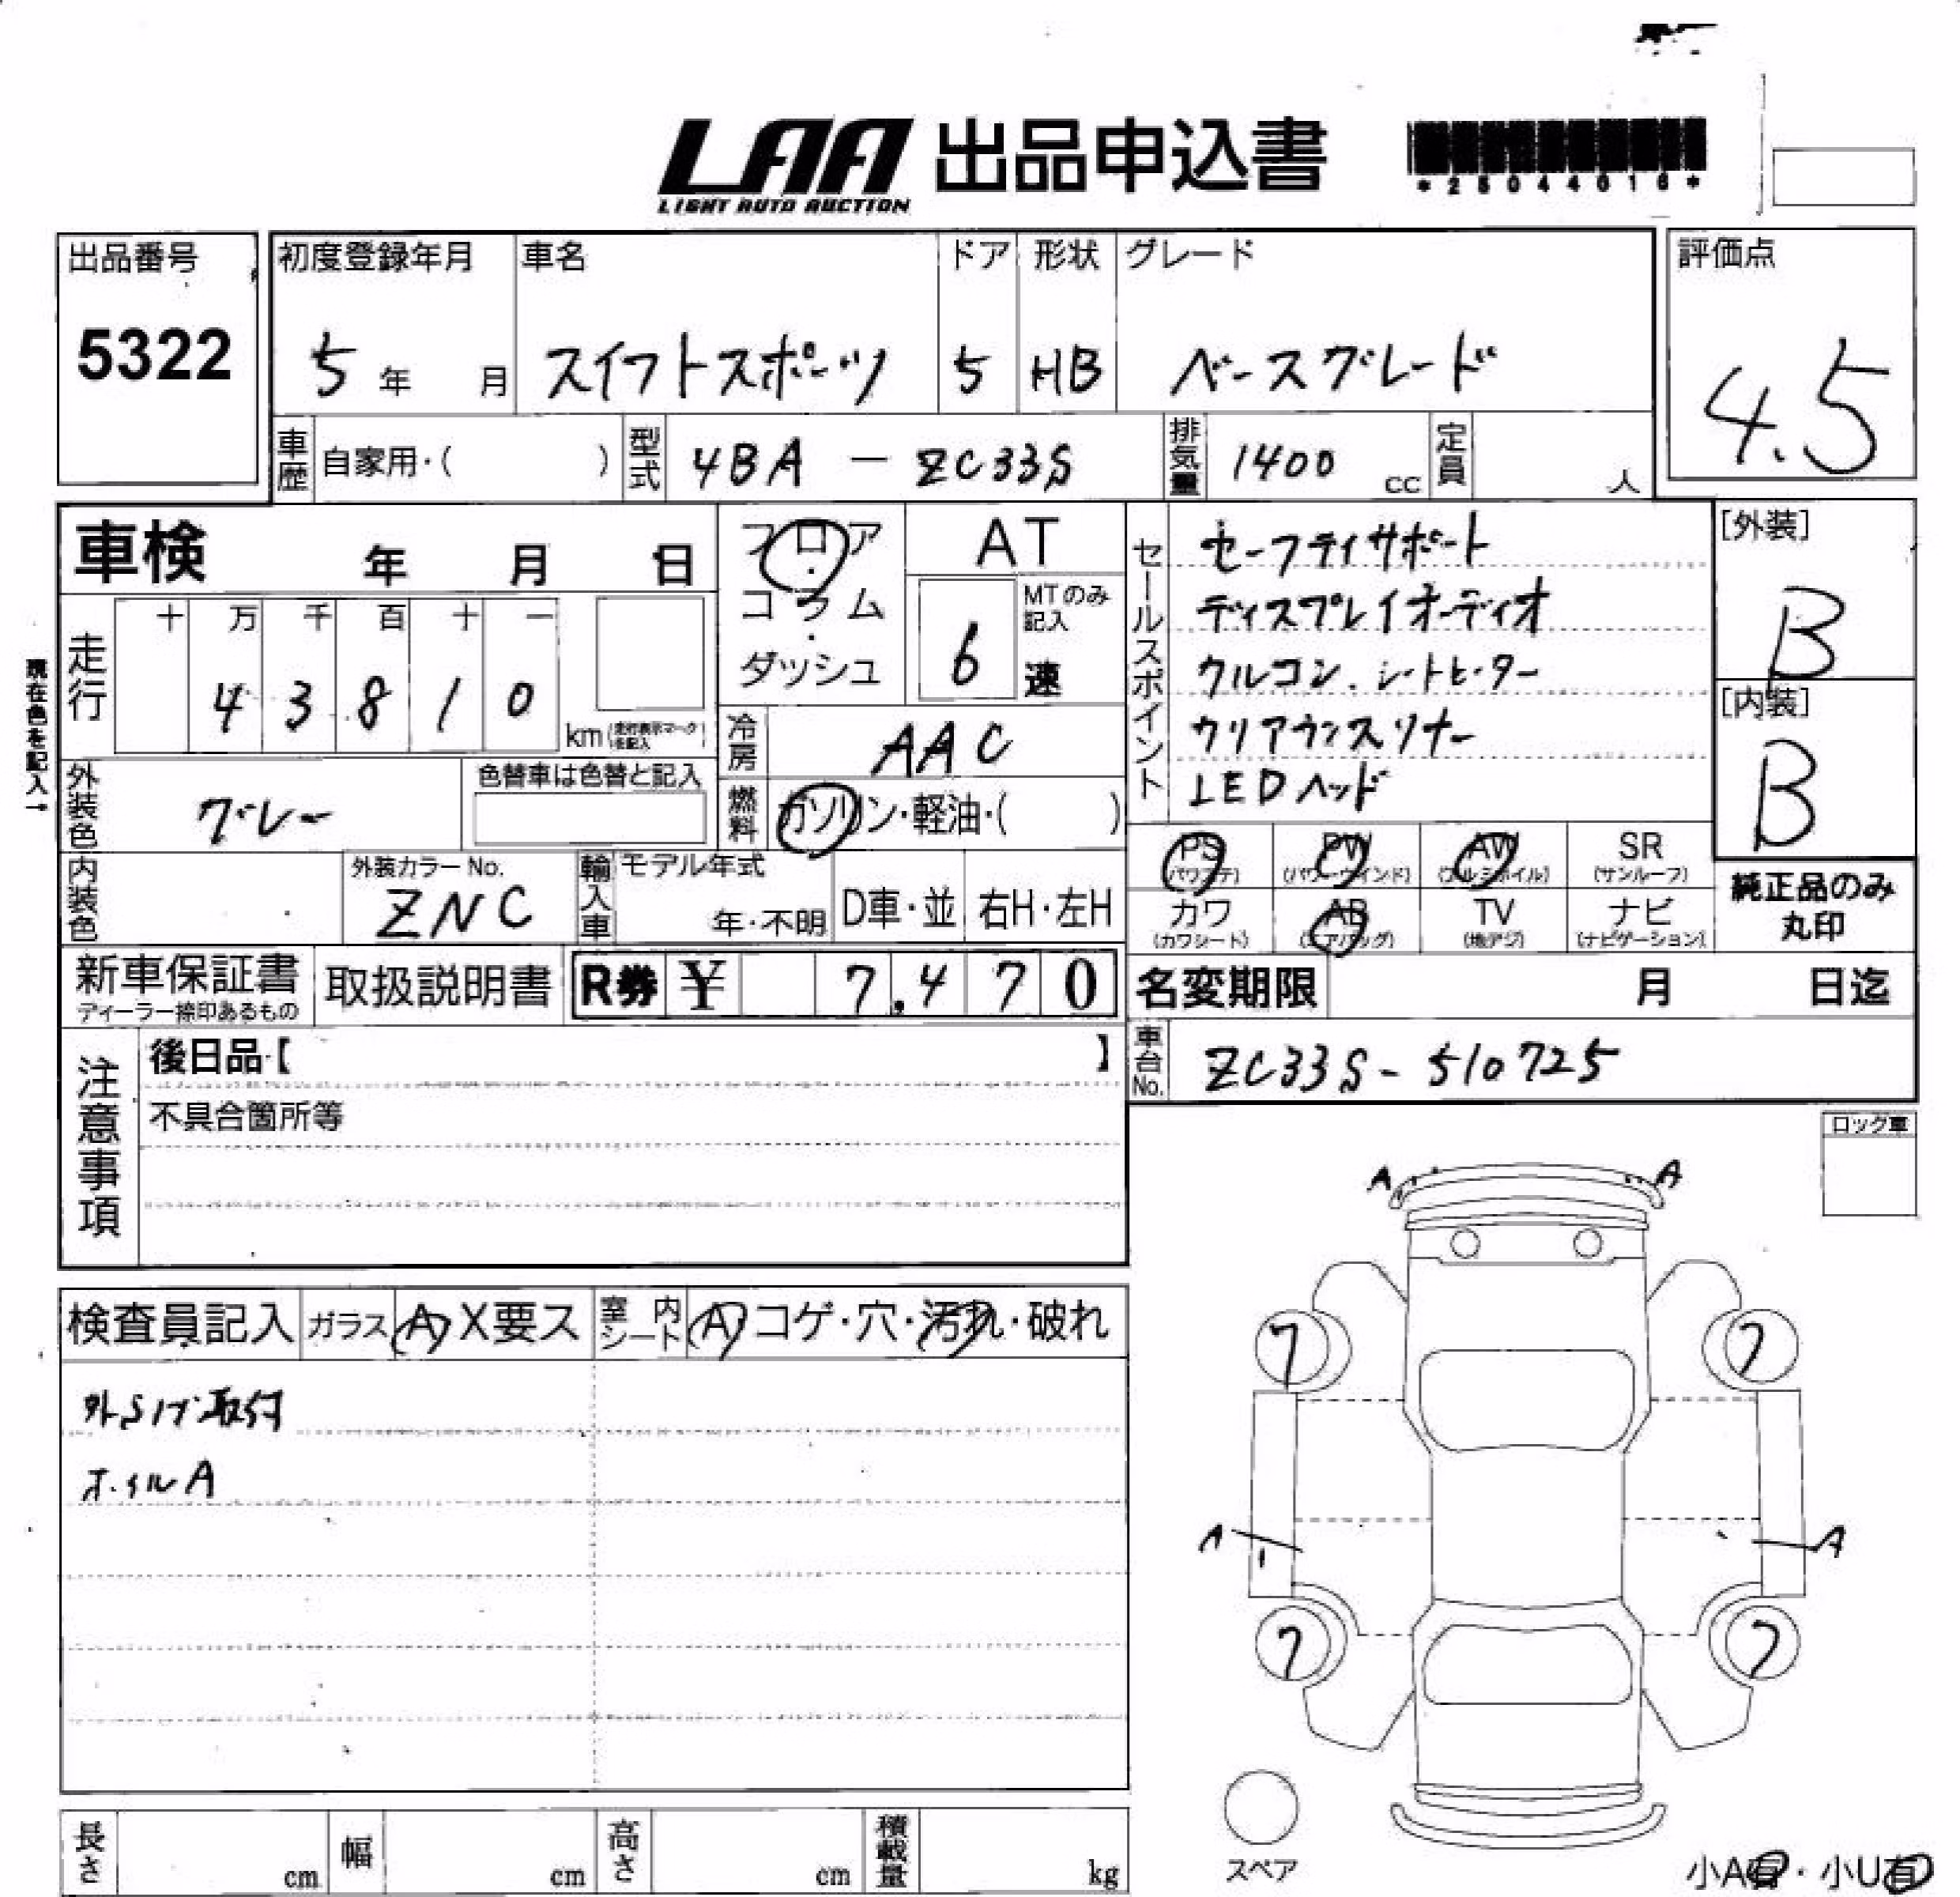 LAA 出品申込書
LIGHT AUTO AUCTION
*25044016*
出品番号
5322
初度登録年月
5年 月
車名
スイフトスポーツ
ドア
5
形状
HB
グレード
ベースグレード
評価点
4.5
車歴 自家用・( )
型式 4BA - ZC33S
排気量 1400 cc
定員 人
車検 年 月 日
フロア・コラム・ダッシュ
AT
6
MTのみ記入
速
セールスポイント
セーフティサポート
ディスプレイオーディオ
クルコン、シートヒーター
クリアランスソナー
LEDヘッド
[外装]
B
[内装]
B
現在色を記入→
走行
十 万 千 百 十 一
4 3 8 1 0
km (走行表示マークを記入)
冷房 AAC
外装色 グレー
色替車は色替と記入
燃料 ガソリン・軽油・( )
PS (パワステ) PW (パワーウィンド) AW (アルミホイル) SR (サンルーフ)
カワ (カワシート) AB (エアバッグ) TV (地デジ) ナビ (ナビゲーション)
純正品のみ丸印
内装色
外装カラーNo.
ZNC
輸入車 モデル年式
年・不明 D車・並 右H・左H
新車保証書
ディーラー捺印あるもの
取扱説明書
R券 ¥ 7,470
名変期限 月 日迄
車台No. ZC33S-510725
注意事項
後日品【 】
不具合箇所等
ロック車
A A
検査員記入 ガラス A X要ス 室内シート A コゲ・穴・汚れ・破れ
7 7
外SイブA取付
ホイルA
A A
7 7
スペア
長さ cm 幅 cm 高さ cm 積載量 kg
小A有・小U有